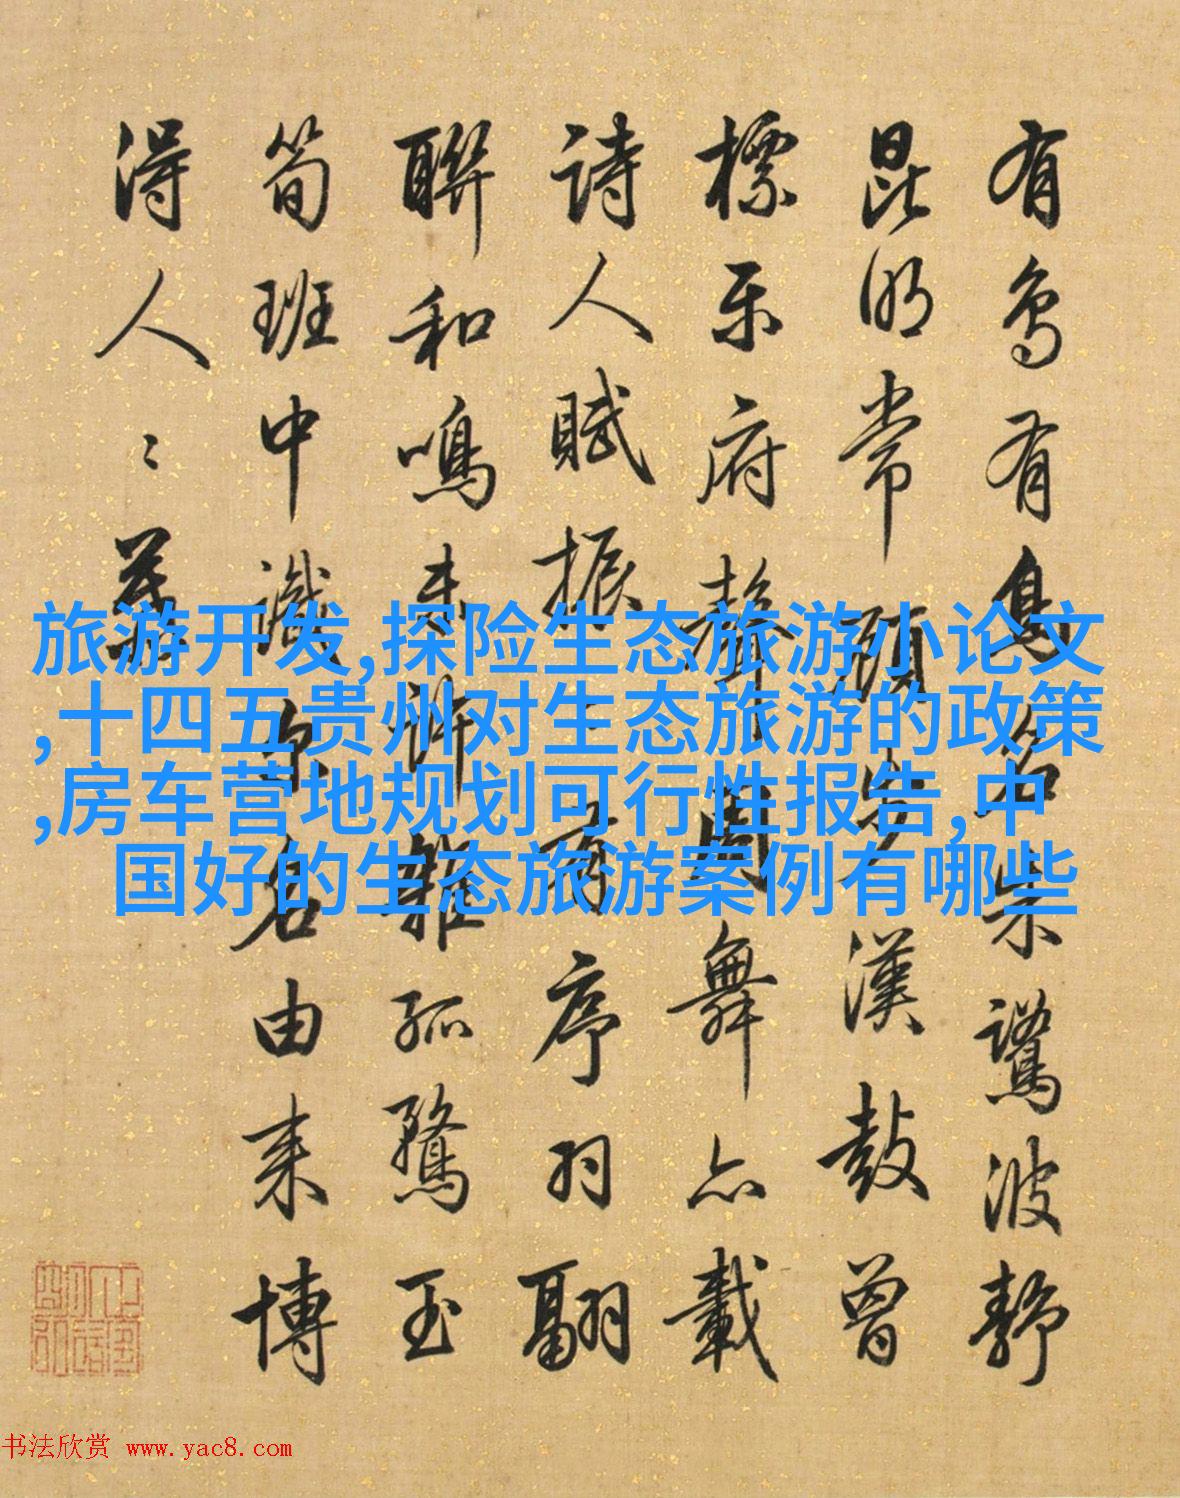 有鳥有鳥名波靜
昆明常顧步漢鼓曾
標樂府聲周舞亦載
詩人賦振〻有序羽翩
聯和鳴來許雜孤鶩玉
筍班中識名由來博
得人〻慕
旅游开发,探险生态旅游小论文
,十四五贵州对生态旅游的政策
,房车营地规划可行性报告,中
国好的生态旅游案例有哪些
书法欣赏 www.yac8.com